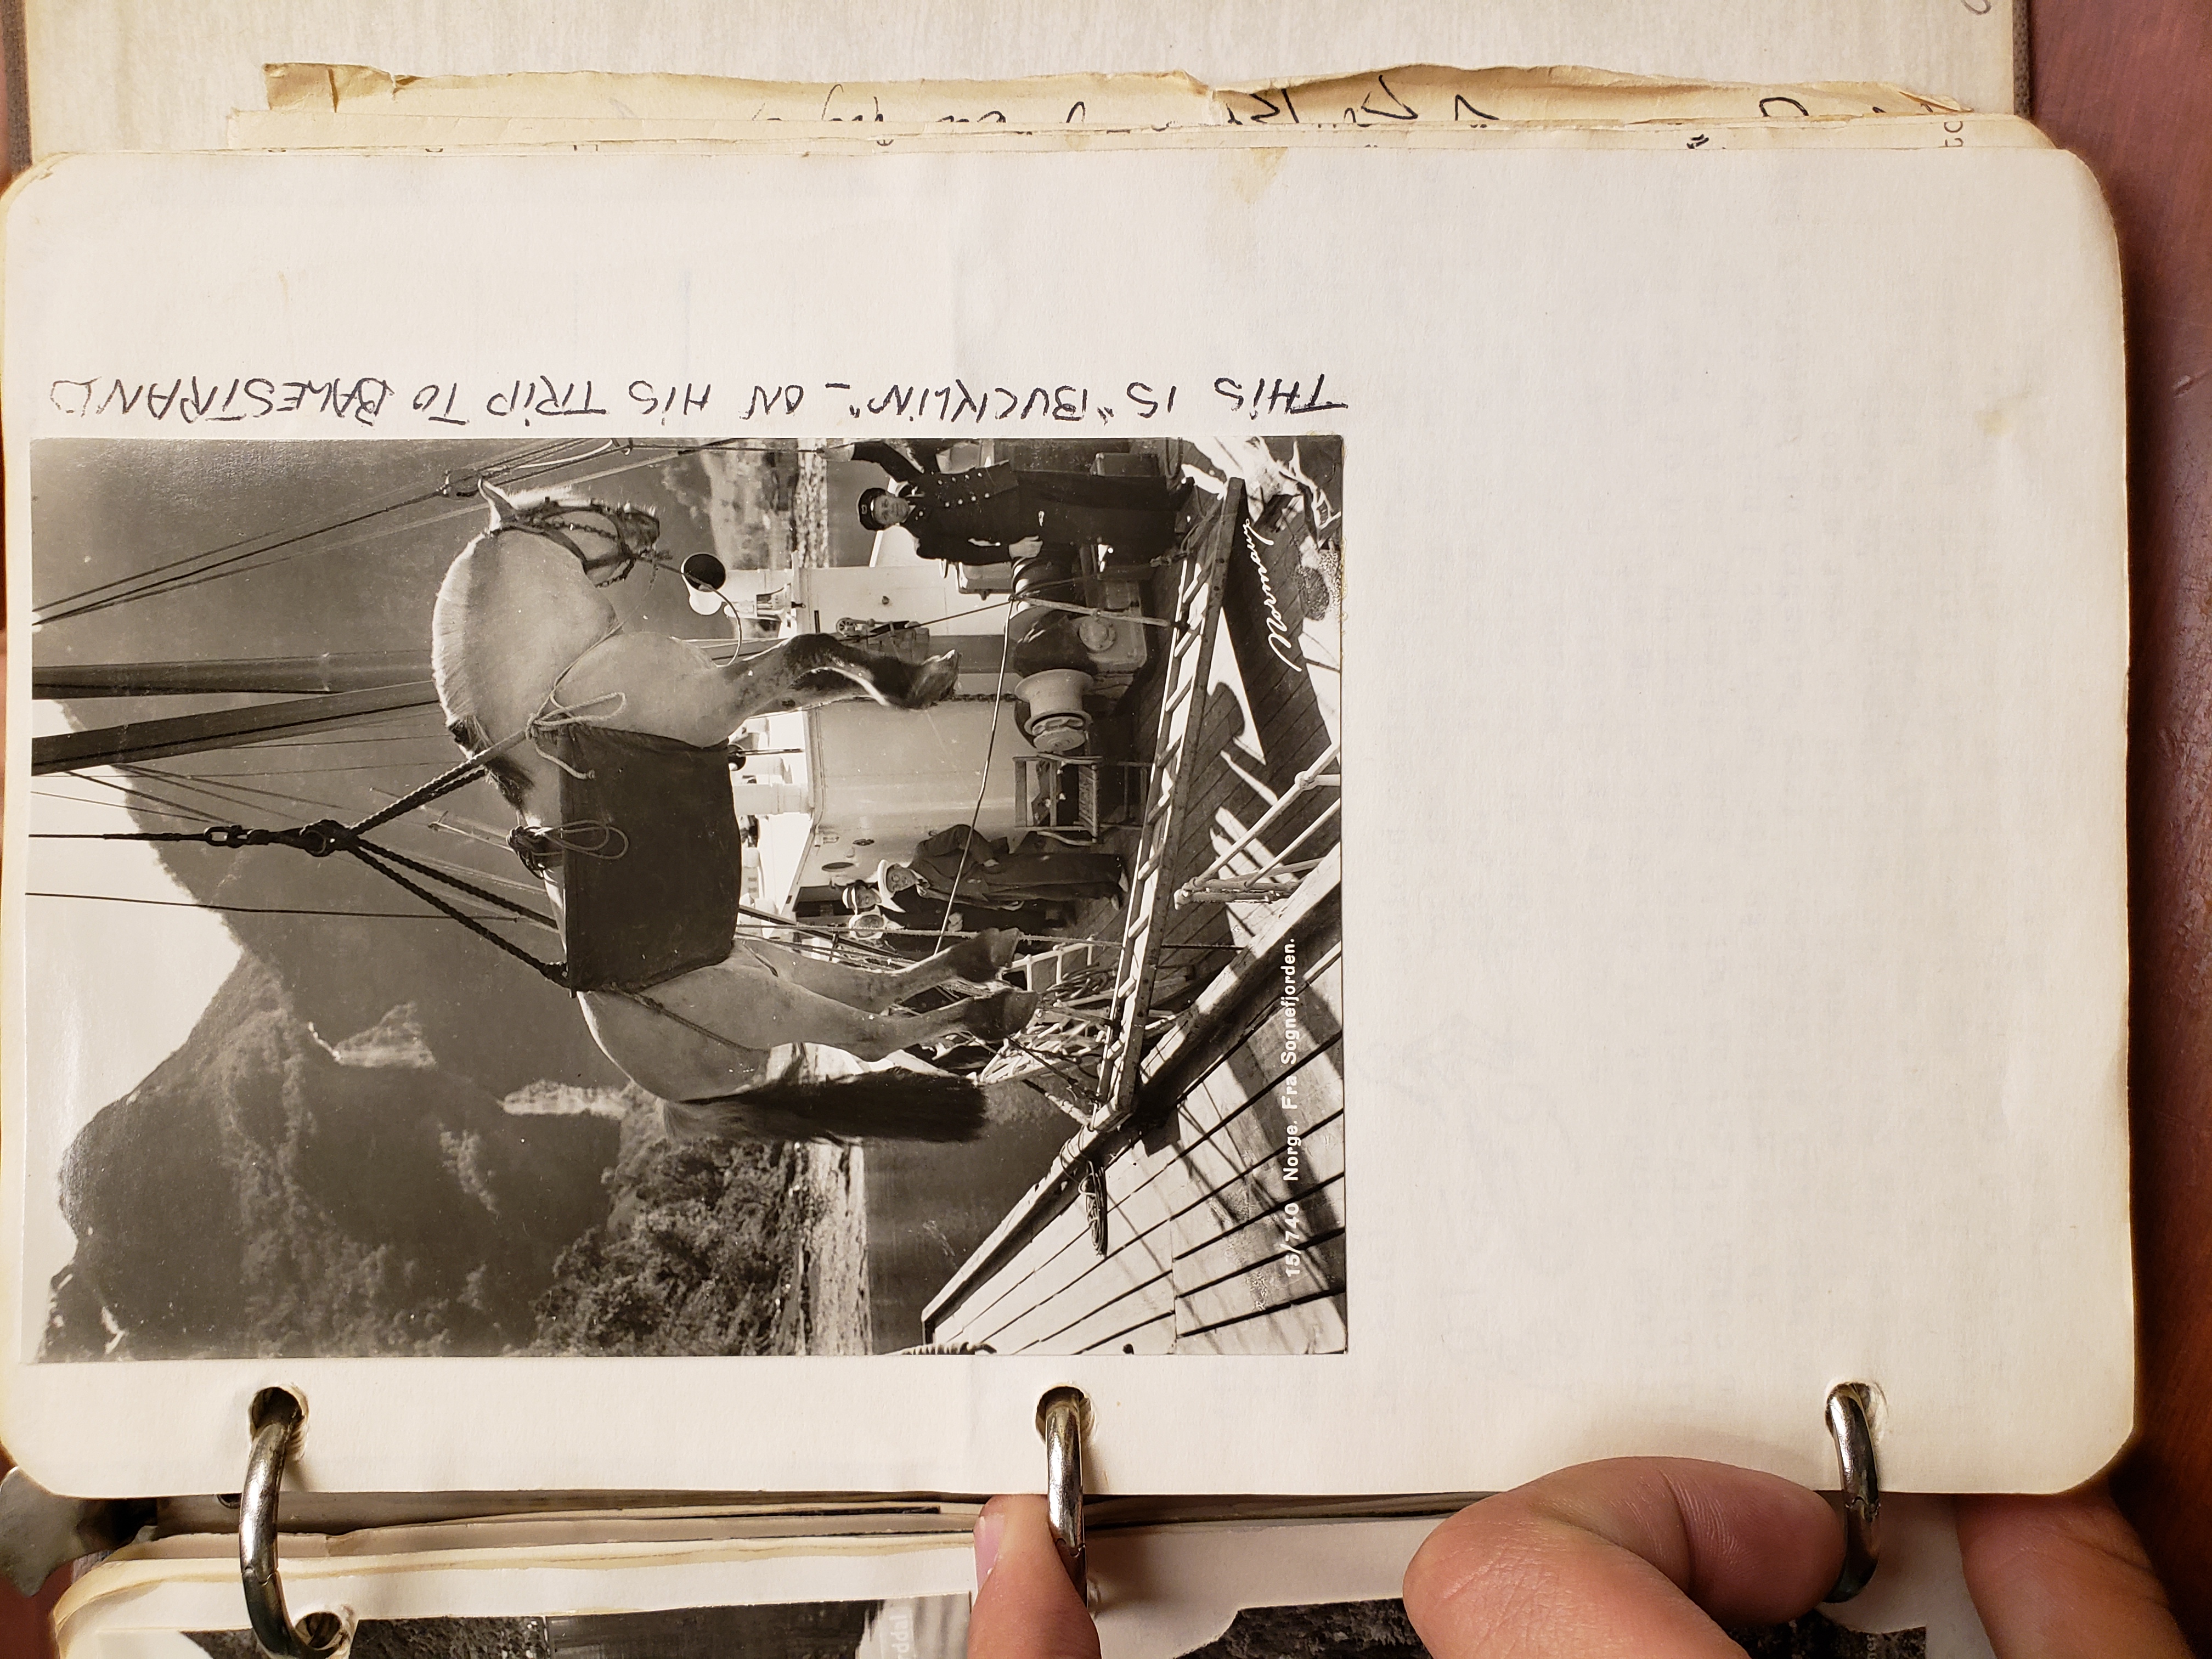 15/740 Norge. Fra Sognefjorden.
Normann
THIS IS "BUCKLIN" - ON HIS TRIP TO BALESTRAND
rddal
ner
to